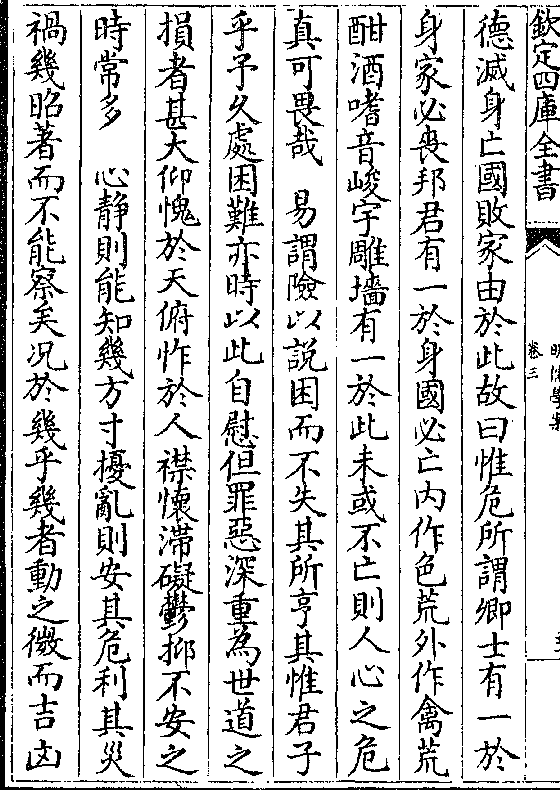 欽定四庫全書
卷三
德滅身亡國敗家由於此故曰惟危所謂卿士有一於
身家必喪邦君有一於身國必亡内作色荒外作禽荒
酣酒嗜音峻宇雕墻有一於此未或不亡則人心之危
真可畏哉　易謂險以說困而不失其所亨其惟君子
乎予久處困難亦時以此自慰但罪惡深重為世道之
損者甚大仰愧於天俯怍於人襟懷滯礙鬱抑不安之
時常多　心静則能知幾方寸擾亂則安其危利其災
禍幾昭著而不能察矣况於幾乎幾者動之微而吉凶